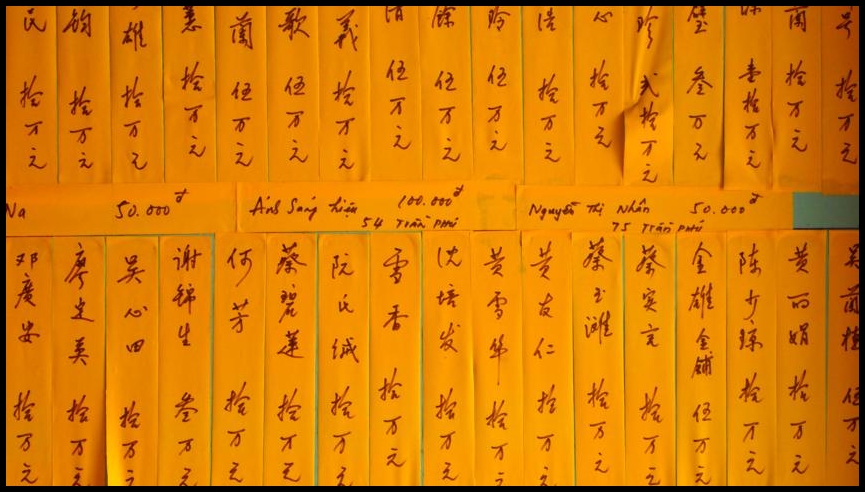 民 拾万元
钧 拾万元
雄 拾万元
慧 拾万元
蘭 伍万元
歌 伍万元
義 拾万元
伍万元
馀 伍万元
玲 伍万元
浩 拾万元
心 拾万元
珍 弍拾万元
璧 叁万元
壹拾万元
蘭 拾万元
号 拾万元
Na 50.000đ
Ánh Sáng hiệu 100.000đ
54 Trần Phú
Nguyễn Thị Nhân 50.000đ
75 Trần Phú
邓廣安 拾万元
廖定英 拾万元
吴心田 拾万元
谢锦生 叁万元
何芳 拾万元
蔡碧莲 拾万元
阮氏绒 拾万元
雪香 拾万元
沈培发 拾万元
黄雪华 拾万元
黄友仁 拾万元
蔡玉滩 拾万元
蔡实元 拾万元
金雄金鋪 伍万元
陈少琼 拾万元
黄丽娟 拾万元
吴蘭 伍万元